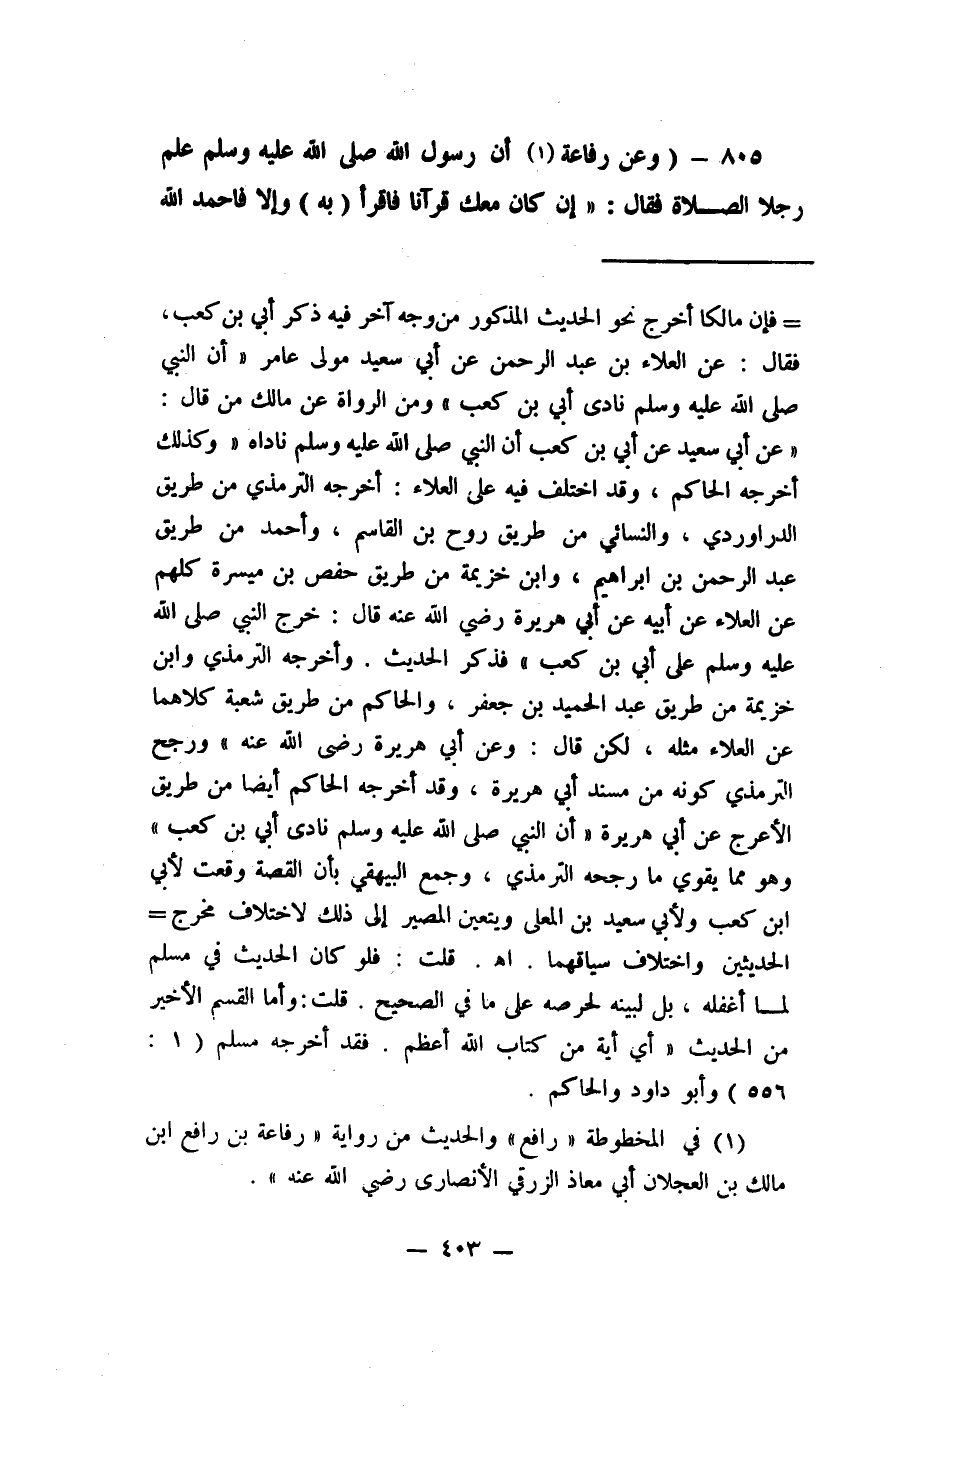 ٨٠٥ – ( وعن رفاعة (١) أن رسول الله صلى الله عليه وسلم علم
رجلا الصـــلاة فقال : « إن كان معك قرآنا فاقرأ ( به ) وإلا فاحمد الله
= فإن مالكا أخرج نحو الحديث المذكور من وجه آخر فيه ذكر أبي بن كعب ،
فقال : عن العلاء بن عبد الرحمن عن أبي سعيد مولى عامر « أن النبي
صلى الله عليه وسلم نادى أبي بن كعب » ومن الرواة عن مالك من قال :
« عن أبي سعيد عن أبي بن كعب أن النبي صلى الله عليه وسلم ناداه « وكذلك
أخرجه الحاكم ، وقد اختلف فيه على العلاء : أخرجه الترمذي من طريق
الدراوردي ، والنسائي من طريق روح بن القاسم ، وأحمد من طريق
عبد الرحمن بن ابراهيم ، وابن خزيمة من طريق حفص بن ميسرة كلهم
عن العلاء عن أبيه عن أبي هريرة رضي الله عنه قال : خرج النبي صلى الله
عليه وسلم على أبي بن كعب » فذكر الحديث . وأخرجه الترمذي وابن
خزيمة من طريق عبد الحميد بن جعفر ، والحاكم من طريق شعبة كلاهما
عن العلاء مثله ، لكن قال : وعن أبي هريرة رضى الله عنه » ورجح
الترمذي كونه من مسند أبي هريرة ، وقد أخرجه الحاكم أيضا من طريق
الأعرج عن أبي هريرة « أن النبي صلى الله عليه وسلم نادى أبي بن كعب »
وهو مما يقوي ما رجحه الترمذي ، وجمع البيهقي بأن القصة وقعت لأبي
ابن كعب ولأبي سعيد بن المعلى ويتعين المصير إلى ذلك لاختلاف مخرج =
الحديثين واختلاف سياقهما . اهـ . قلت : فلو كان الحديث في مسلم
لمـــا أغفله ، بل لبينه لحرصه على ما في الصحيح . قلت : وأما القسم الأخير
من الحديث « أي أية من كتاب الله أعظم . فقد أخرجه مسلم ( ١ :
٥٥٦ ) وأبو داود والحاكم .
(١) في المخطوطة « رافع » والحديث من رواية « رفاعة بن رافع ابن
مالك بن العجلان أبي معاذ الزرقي الأنصارى رضي الله عنه » .
– ٤٠٣ –